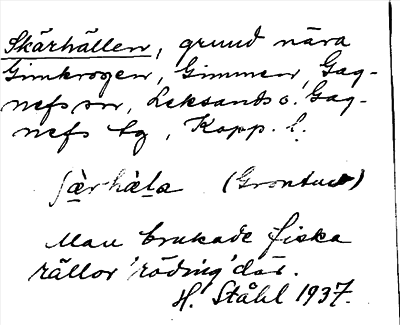 Skärhällen, grund nära
Gimkrogen, Gimmen, Gag-
nefs sn, Leksands o. Gag-
nefs tg, Kopp. l.
(Grontuv)
Man brukade fiska
rällor 'röding' där.
H. Ståhl 1937.